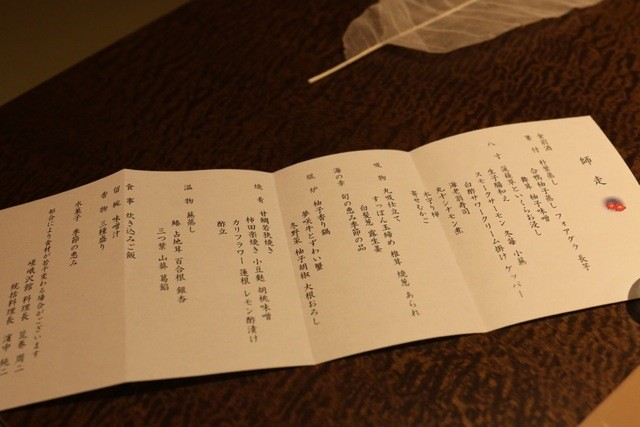 師走
食前酒
箸付 朴葉蒸し フォアグラ 長芋
合鴨柚子蒸し
舞茸 柚子味噌
菠薐草としららお浸し
八寸 生子腸和え
スモークサーモン 冬苺 小蕪
白酢サワークリーム掛け ケッパー
海老 羽寿司
丸十シナモン煮
木守り柿
寄せむかご
吸物 丸吸仕立て
すっぽん玉締め 椎茸 焼葱 あられ
白髪葱 露生姜
海の幸 旬の恵み季節の品
焜炉 柚子香り鍋
夢咲牛とずわい蟹
冬野菜 柚子胡椒 大根おろし
焼肴 甘鯛若狭焼き
柿田楽焼き 小豆麩 胡桃味噌
カリフラワー 蓮根 レモン酢漬け
酢立
温物 蕪蒸し
鰆 占地茸 百合根 銀杏
三つ葉 山葵 葛餡
食事 炊き込みご飯
留椀 味噌汁
香物 三種盛り
水菓子 季節の恵み
都合により食材が若干変わる場合がございます
料理長 荒巻 周二
統括料理長 濱中 純二